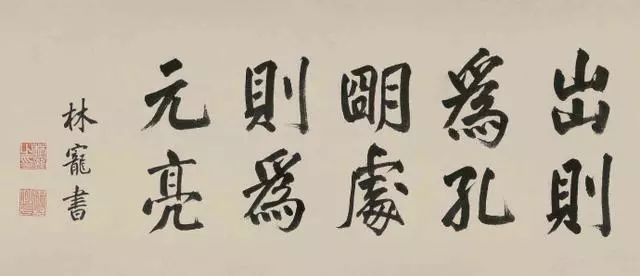 出則
爲孔
朙處
則爲
元亮
林寵書